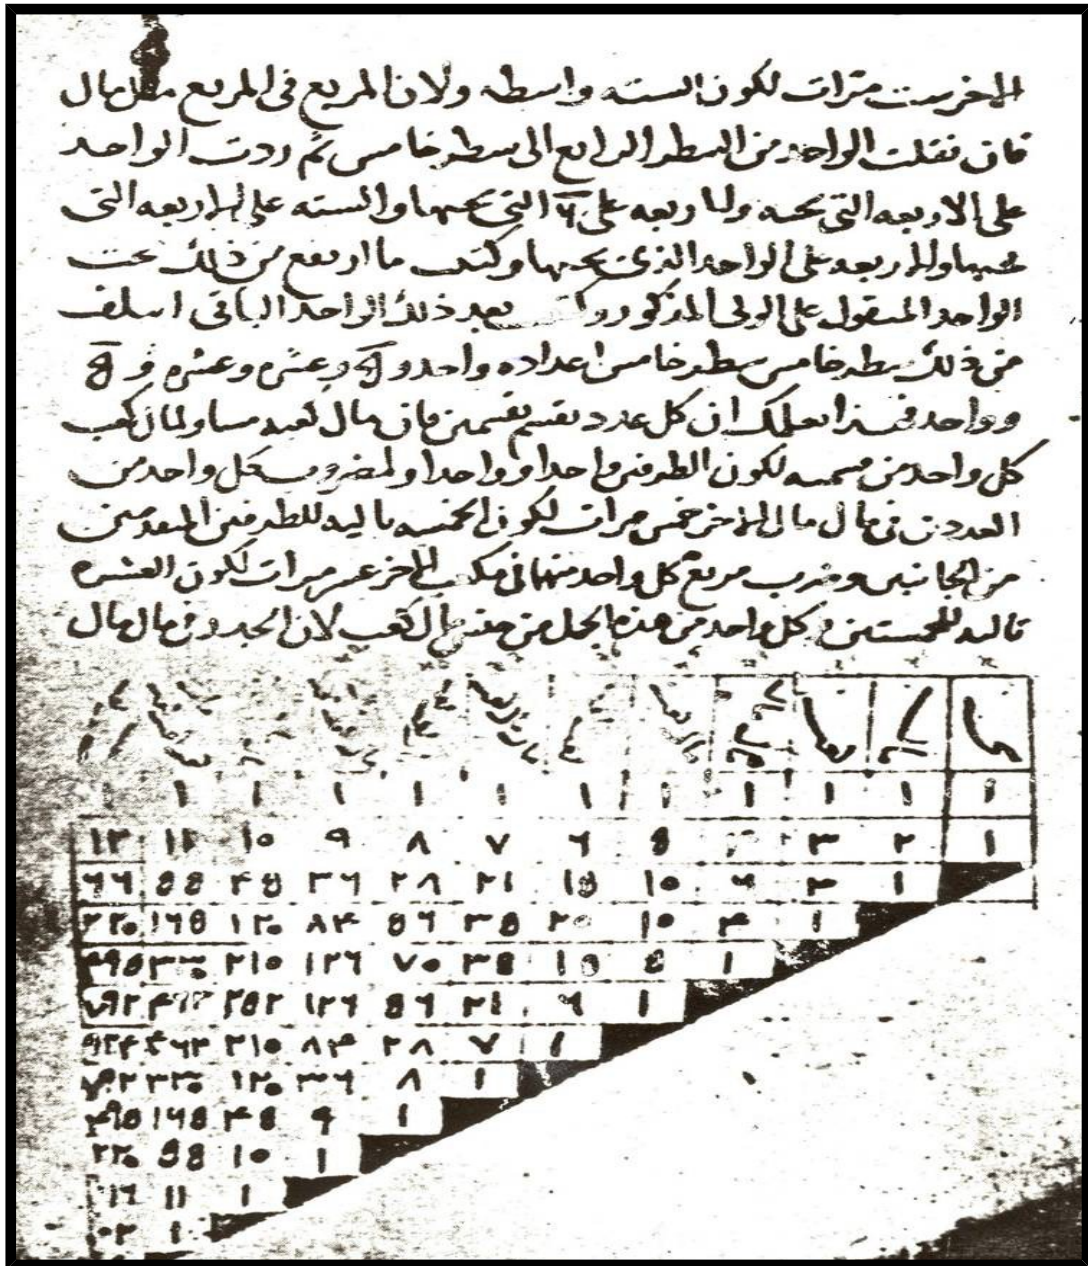 الاخر ست مرات لكون السته واسطه ولان المربع فى المربع مثل مال
فان نقلت الواحد من السطر الرابع الى سطر خامس ثم زدت الواحد
على الاربعه التى تحته والاربعه على ٦ التى تحتها والسته على الاربعه التى
تحتها والاربعه على الواحد الذى تحتها وكتبت ما ارتفع من ذلك تحت
الواحد المنقول على الولى المذكور بعد ذلك الواحد الباقى
من ذلك سطر خامس اعداده واحد و ٥ وعشره وعشره و ٥
وواحد فهذا يعلمك ان كل عدد يقسم بقسمين فان مال كعبه مساو لمال كعب
كل واحد من قسميه لكون الطرفين واحدا وواحدا ولمضروب كل واحد من
العددين فى مال مال الاخر خمس مرات لكون الخمسه تاليه للطرفين المتقدمين
من الجانبين وضرب مربع كل واحد منهما فى مكعب الاخر عشر مرات لكون العشره
تاليه للخمستين وكل واحد من هذه الجمل من جنس مال كعب لان الجذر فى مال مال
١ ١ ١ ١ ١ ١ ١ ١ ١ ١ ١ ١
١ ٢ ٣ ٥ ٦ ٧ ٨ ٩ ١٠ ١١ ١٢
١ ٣ ٦ ١٠ ١٥ ٢١ ٢٨ ٣٦ ٤٥ ٥٥ ٦٦
١ ٤ ١٠ ٢٠ ٣٥ ٥٦ ٨٤ ١٢٠ ١٦٥ ٢٢٠
١ ٥ ١٥ ٣٥ ٧٠ ١٢٦ ٢١٠ ٣٣٠ ٤٩٥
١ ٦ ٢١ ٥٦ ١٢٦ ٢٥٢ ٤٦٢ ٧٩٢
١ ٧ ٢٨ ٨٤ ٢١٠ ٤٦٢ ٩٢٤
١ ٨ ٣٦ ١٢٠ ٣٣٠ ٧٩٢
١ ٩ ٤٥ ١٦٥ ٤٩٥
١ ١٠ ٥٥ ٢٢٠
١ ١١
١